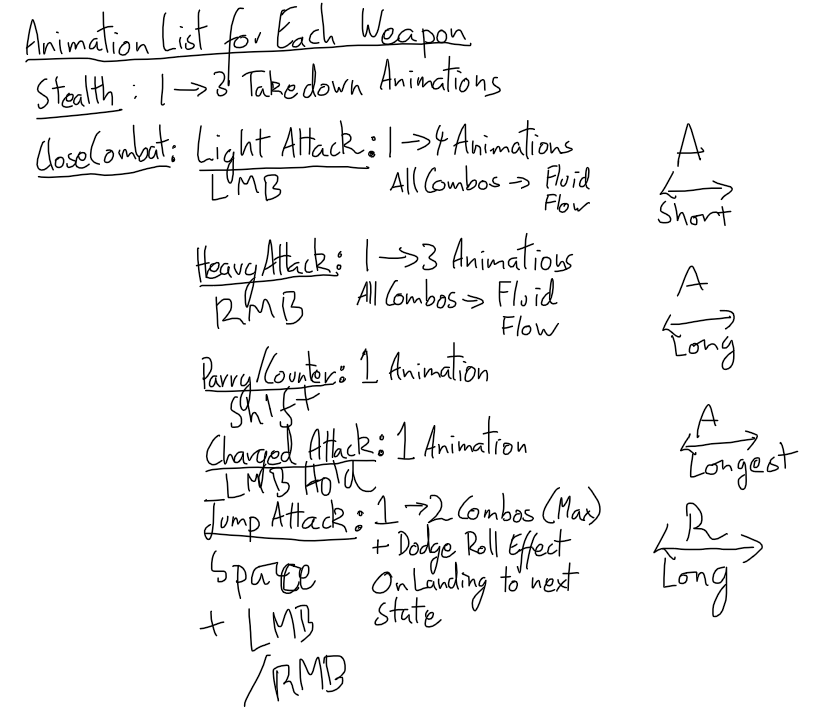 Animation List for Each Weapon
Stealth : 1→3 Takedown Animations
Close Combat: Light Attack: 1→4 Animations
LMB
All Combos → Fluid
Flow
A
Short
Heavy Attack: 1→3 Animations
RMB
All Combos → Fluid
Flow
A
Long
Parry/Counter: 1 Animation
Shift
Charged Attack: 1 Animation
LMB Hold
A
Longest
Jump Attack: 1→2 Combos (Max)
+ Dodge Roll Effect
On Landing to next
State
Space
+ LMB
/RMB
R
Long